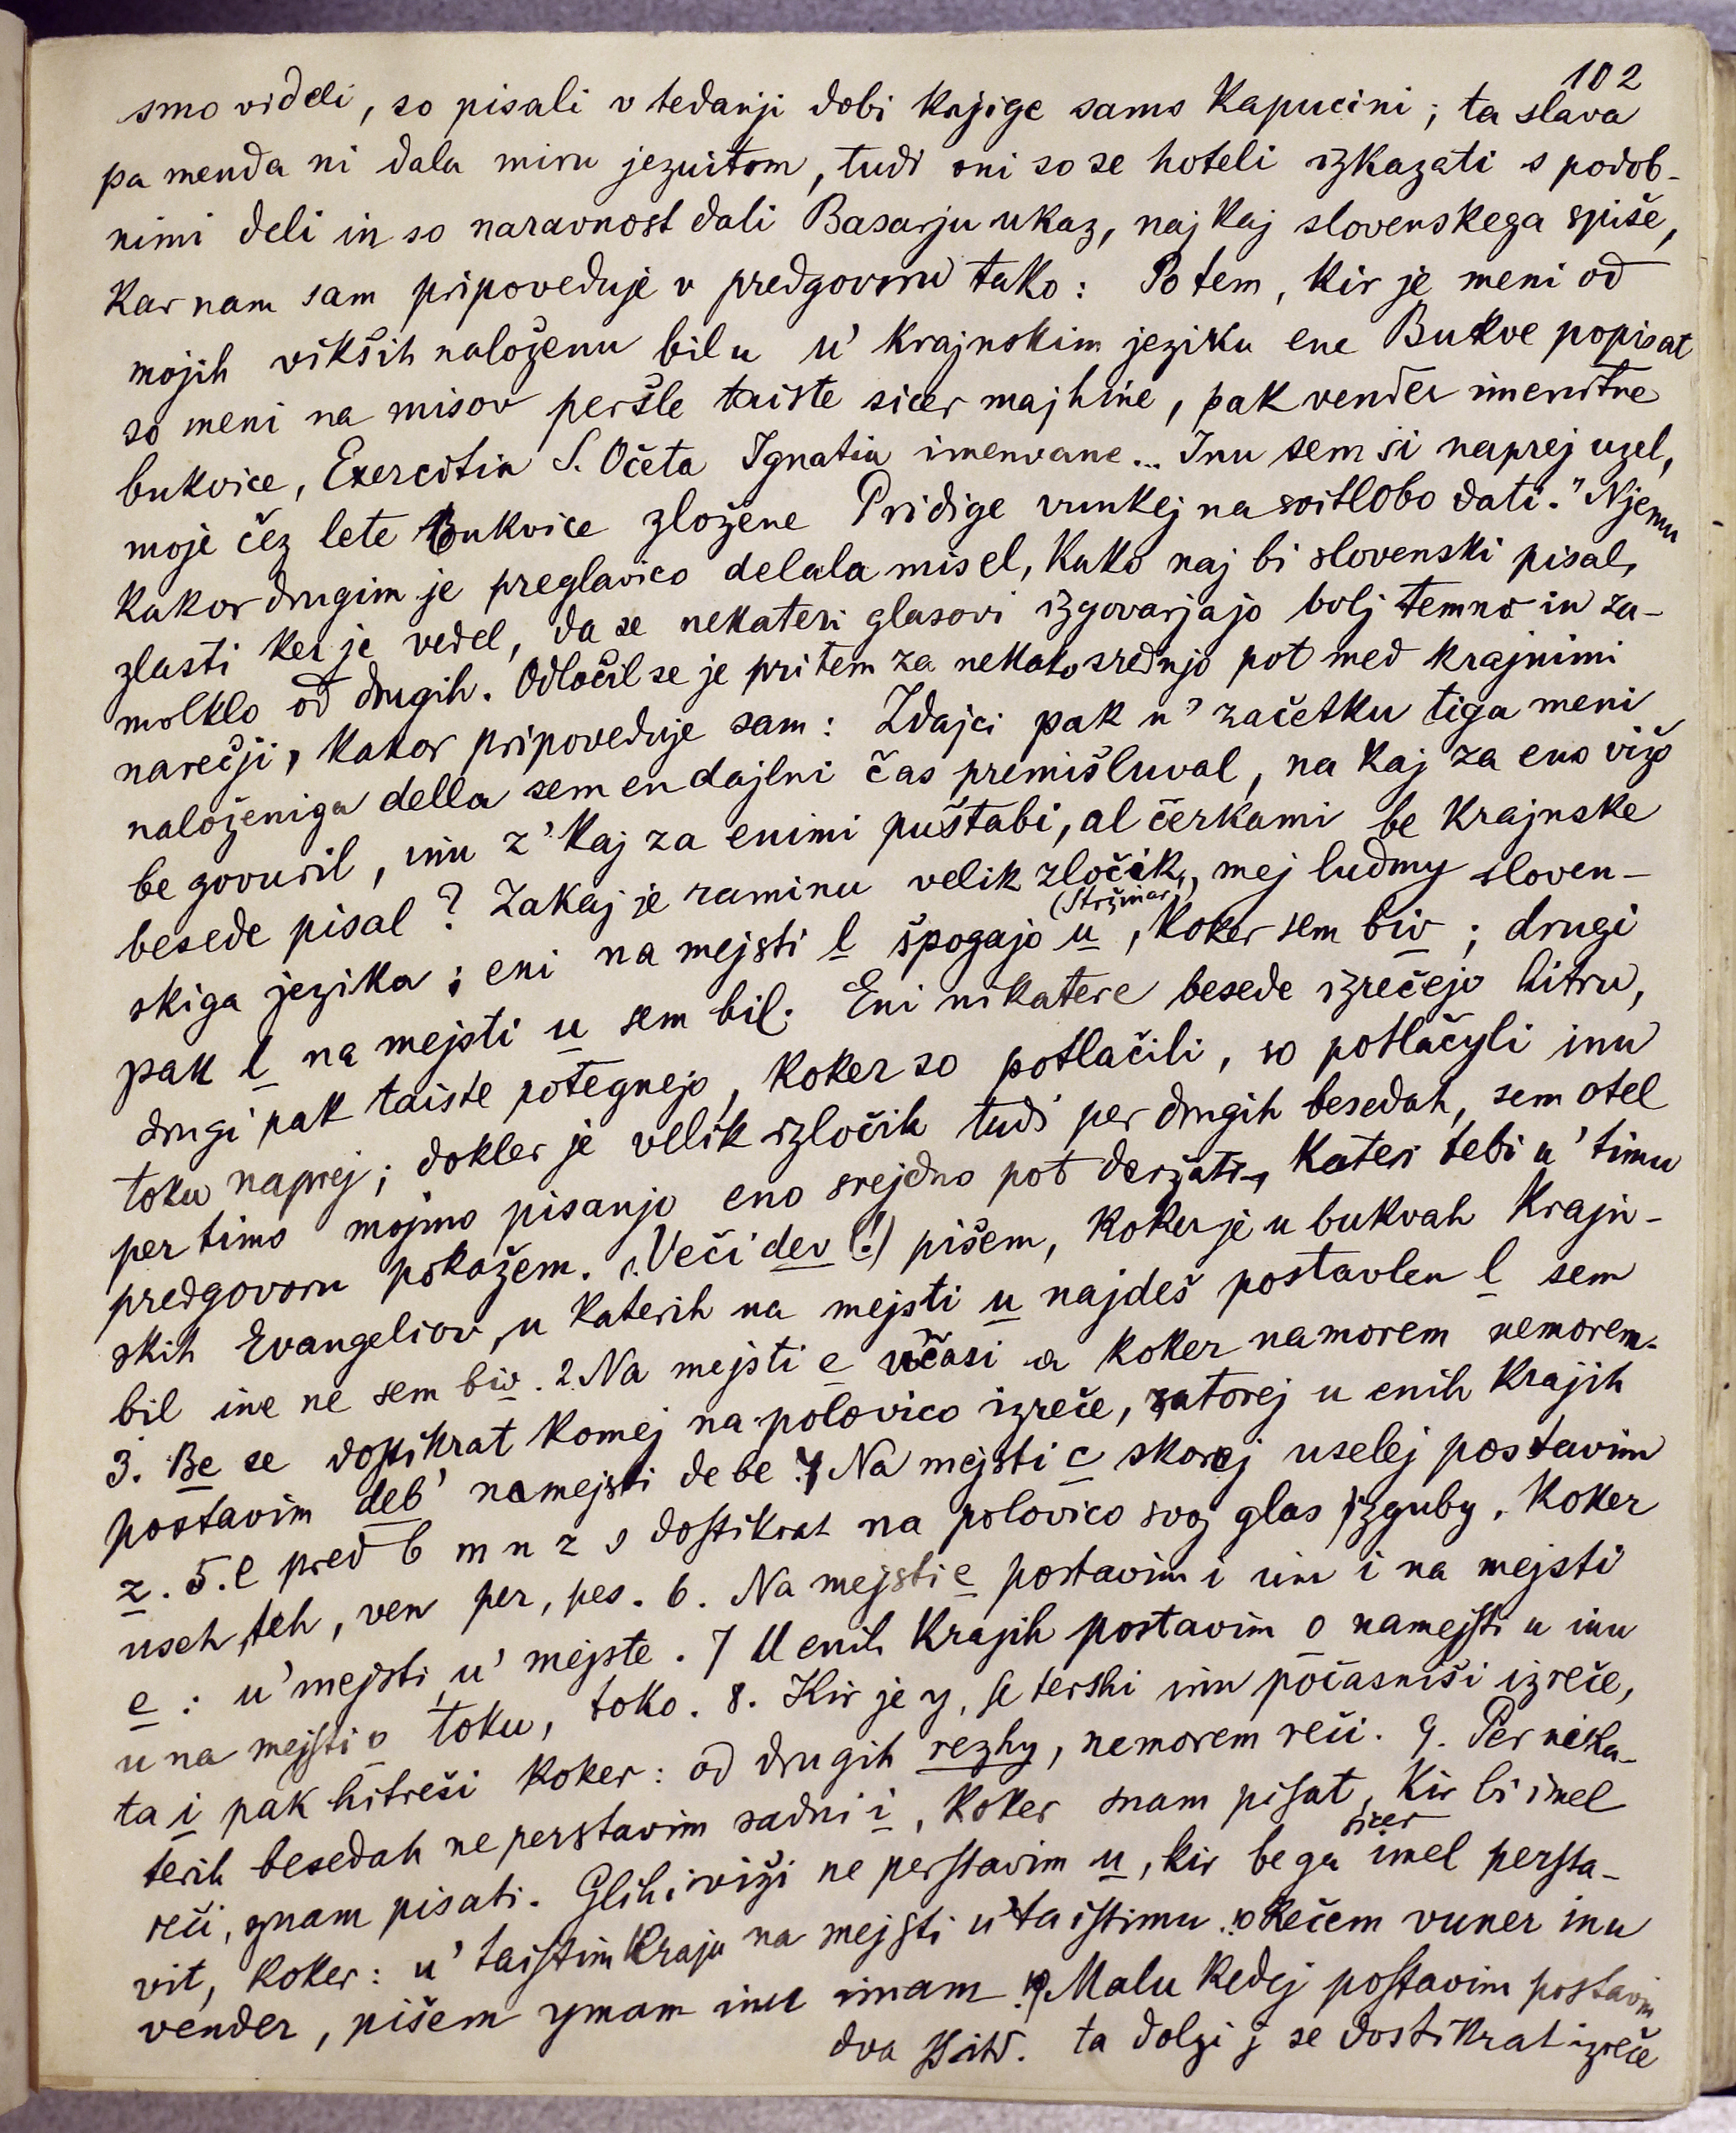 102
smo videli, so pisali v tedanji dobi knjige samo Kapucini; ta slava
pa menda ni dala miru jezuitom, tudi oni so se hoteli izkazati s podob-
nimi deli in so naravnost dali Basarju ukaz, naj kaj slovenskega spiše,
kar nam sam pripoveduje v predgovoru tako: Potem, kir je meni od
mojih vikših naloženu bilu u' krajnskim jeziku ene Bukve popisat
so meni na misov peršle taiste sicer majhine, pak vender imenitne
bukvice, Exercitia S. Očeta Ignatia imenvane... Inu sem si naprej uzel,
moje čez lete Bukvice zložene Pridige vunkej na svitlobo dati." Njemu
kakor drugim je preglavico delala misel, kako naj bi slovenski pisal,
zlasti ker je vedel, da se nekateri glasovi izgovarjajo bolj temno in za-
molklo od drugih. Odločil se je pri tem za nekako srednjo pot med krajnimi
narečji, kakor pripoveduje sam: Zdajci pak u' začetku tiga meni
naloženiga della sem en dajlni čas premišluval, na kaj za eno vižo
be govuril, inu z' kaj za enimi puštabi, al čerkami be krajnske
besede pisal? Zakaj je raminu velik zločik, mej ludmy sloven-
(Stržinar)
skiga jezika; eni na mejsti l špogajo u, koker sem biv; drugi
pak l na mejsti u sem bil. Eni nikatere besede izrečejo hitru,
drugi pak taiste potegnejo, koker so potlačili, so potlačyli inu
toku naprej; dokler je velik izločik tudi per drugih besedah, sem otel
per timo mojmo pisanjo eno srejdno pot deržati, kateri tebi u' timu
predgovoru pokažem. 1. Veči dev (!) pišem, koker je u bukvah Krajn-
skih Evangeliov, u katerih na mejsti u najdeš postavlen l sem
bil ine ne sem biv. 2. Na mejsti e včasi a koker namorem nemorem.
3. Be se dostikrat komej na polovico izreče, zatorej u enih krajih
postavim deb' namejsti de be. 4 Na mejsti c skorej uselej postavim
z. 5. e pred b m n z s dostikrat na polovico svoj glas izguby, koker
useh, teh, ven per, pes. 6. Na mejsti e postavim i inu i na mejsti
e: u' mejsti, u' mejste. 7 U enih krajih postavim o namejsti u inu
u na mejsti o toku, toko. 8. Kir je y, se terski inu počasniši izreče,
ta i pak hitreši koker: od drugih rezhy, nemorem reči. 9. Per nika-
terih besedah ne perstavim sadni i, koker snam pisat, kir bi imel
sicer
reči, znam pisati. Glihi viži ne perstavim u, kir be ga imel persta-
vit, koker: u' taistim kraju na mejsti u' taistimu. 10 Rečem vuner inu
vender, pišem ymam inu imam. 11. Malu kedej postavim postavim
dva ta dolgi j se dostikrat izreče